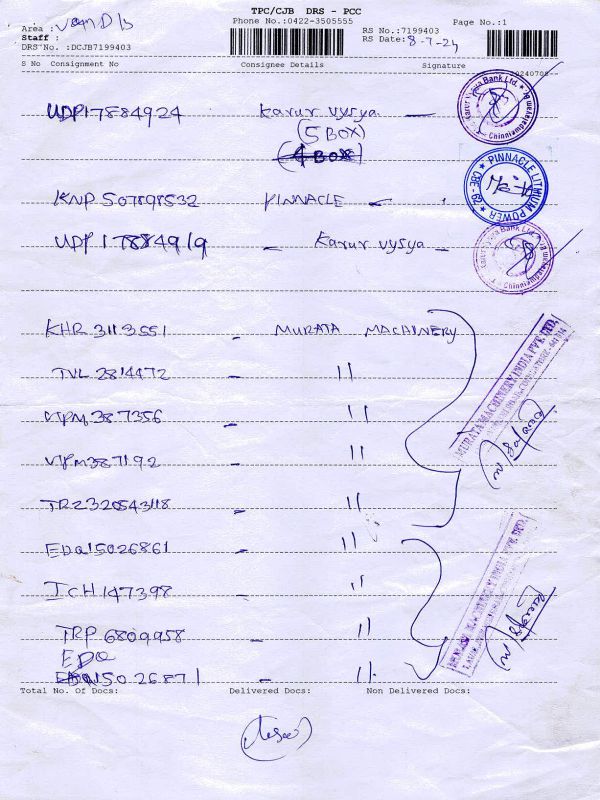 TPC/CJB DRS - PCC
Area : Van D/s Phone No.:0422-3505555 RS No.:7199403 Page No.:1
Staff : RS Date: 8-7-24
DRS No. :DCJB7199403
S No Consignment No Consignee Details Signature
UDP17884924 Karur vysya
(5 BOX)
(4 BOX)
KNP 507898532 PINNACLE
UDP 178849/9 - Karur vysya
KHR 3113551 - MURATA MACHINERY
TVL 2814472 - 11
VPM 387356 - 11
VPM387192 - 11
TRZ320543118 - 11
EDQ15026861 - 11
ICH 147398 11
TRP 6809958 - 11
EDQ
15026871 - 11
Total No. Of Docs: Delivered Docs: Non Delivered Docs:
Karur Vysya Bank Ltd.
Chinniampalayam
PINNACLE LITHIUM POWER
Karur Vysya Bank Ltd.
Chinniampalayam
MURATA MACHINERY INDIA PVT. LTD.